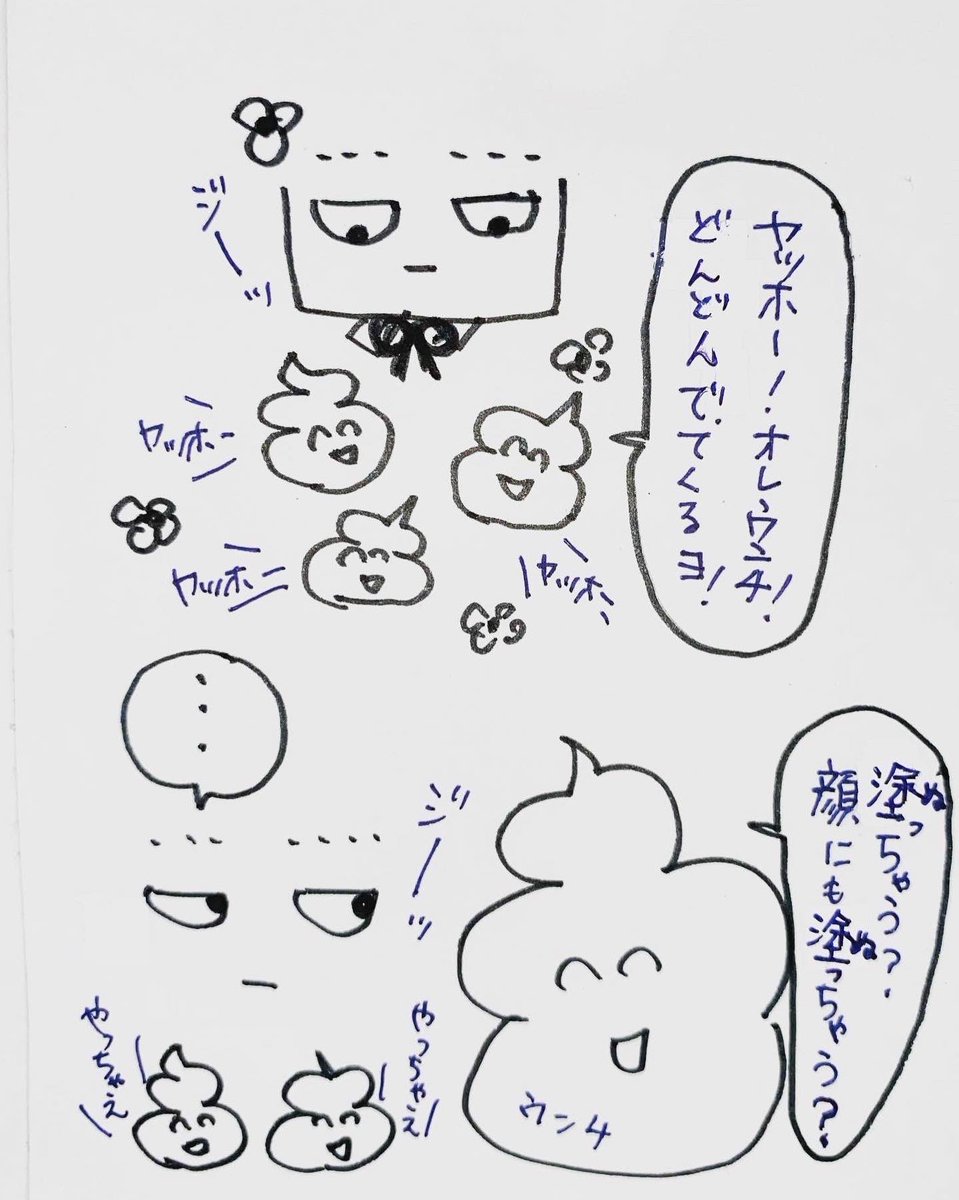 ヤッホー！オレウンチ！
どんどんでてくるヨ！
ジーッ
ヤッホー
ヤッホー
ヤッホー
塗っちゃう？
ぬ
顔にも塗っちゃう？
ぬ
・・・
ジーッ
やっちゃえ
やっちゃえ
ウンチ